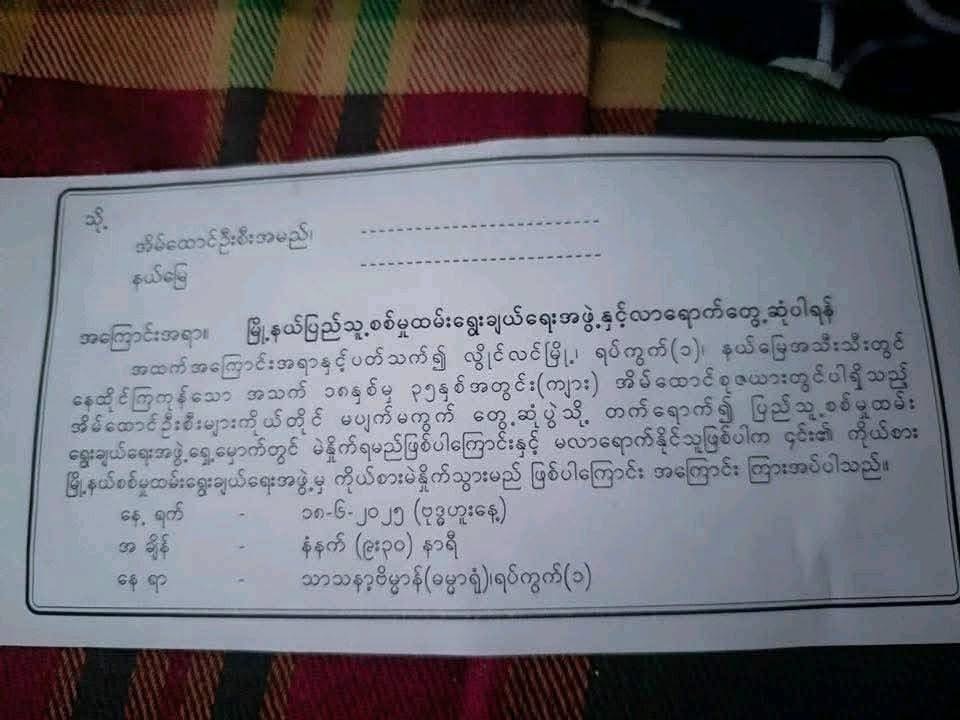 သို့
အိမ်ထောင်ဦးစီးအမည်၊ ------------------------------
နယ်မြေ ------------------------------
အကြောင်းအရာ။ မြို့နယ်ပြည်သူ့စစ်မှုထမ်းရွေးချယ်ရေးအဖွဲ့နှင့်လာရောက်တွေ့ဆုံပါရန်
အထက်အကြောင်းအရာနှင့်ပတ်သက်၍ လွိုင်လင်မြို့၊ ရပ်ကွက်(၁)၊ နယ်မြေအသီးသီးတွင်
နေထိုင်ကြကုန်သော အသက် ၁၈နှစ်မှ ၃၅နှစ်အတွင်း(ကျား) အိမ်ထောင်စုဇယားတွင်ပါရှိသည့်
အိမ်ထောင်ဦးစီးများကိုယ်တိုင် မပျက်မကွက် တွေ့ဆုံပွဲသို့ တက်ရောက်၍ ပြည်သူ့စစ်မှုထမ်း
ရွေးချယ်ရေးအဖွဲ့ရှေ့မှောက်တွင် မဲနှိုက်ရမည်ဖြစ်ပါကြောင်းနှင့် မလာရောက်နိုင်သူဖြစ်ပါက ၎င်း၏ ကိုယ်စား
မြို့နယ်စစ်မှုထမ်းရွေးချယ်ရေးအဖွဲ့မှ ကိုယ်စားမဲနှိုက်သွားမည် ဖြစ်ပါကြောင်း အကြောင်း ကြားအပ်ပါသည်။
နေ့ ရက် - ၁၈-၆-၂၀၂၅ (ဗုဒ္ဓဟူးနေ့)
အ ချိန် - နံနက် (၉း၃၀) နာရီ
နေ ရာ - သာသနာ့ဗိမ္မာန်(ဓမ္မာရုံ)၊ရပ်ကွက်(၁)